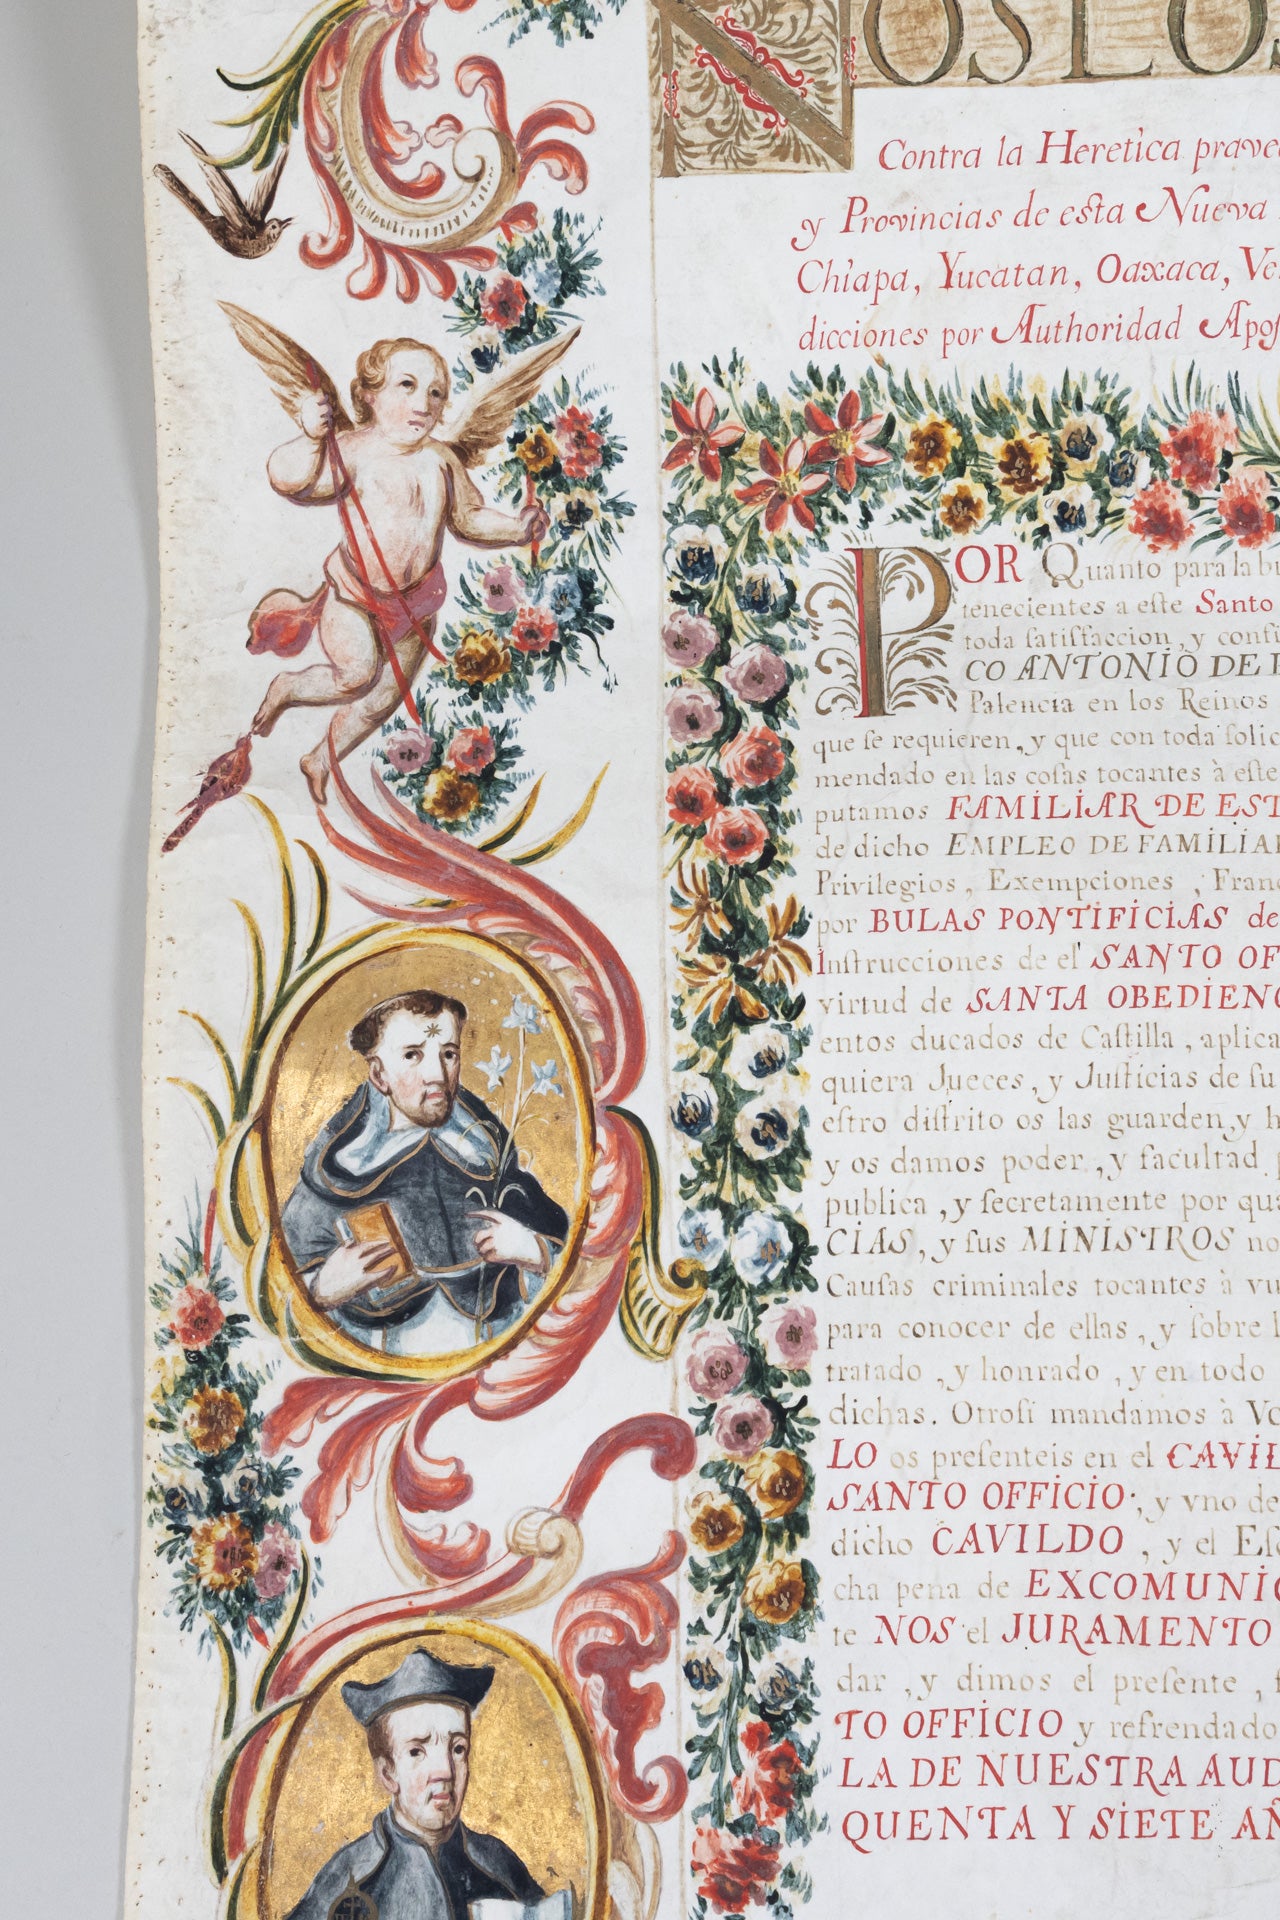 NOS LOS
Contra la Heretica prave
y Provincias de esta Nueva
Chiapa, Yucatan, Oaxaca, Ve
dicciones por Authoridad Apos
POR Quanto para la bu
tenecientes a este Santo
toda satisfaccion, y conf
CO ANTONIO DE
Palencia en los Reinos
que se requieren, y que con toda solic
mendado en las cosas tocantes à este
putamos FAMILIAR DE EST
de dicho EMPLEO DE FAMILIAR
Privilegios, Exempciones, Fran
por BULAS PONTIFICIAS de
Instrucciones de el SANTO OF
virtud de SANTA OBEDIENC
entos ducados de Castilla, aplica
quiera Jueces, y Justicias de su
estro distrito os las guarden, y h
y os damos poder, y facultad
publica, y secretamente por qu
CIAS, y sus MINISTROS no
Causas criminales tocantes à vu
para conocer de ellas, y sobre l
tratado, y honrado, y en todo
dichas. Otrosi mandamos à Vo
LO os presenteis en el CAVIL
SANTO OFFICIO, y vno de
dicho CAVILDO, y el Es
cha pena de EXCOMUNIO
te NOS el JURAMENTO
dar, y dimos el presente,
TO OFFICIO y refrendado
LA DE NUESTRA AUD
QUENTA Y SIETE AÑ